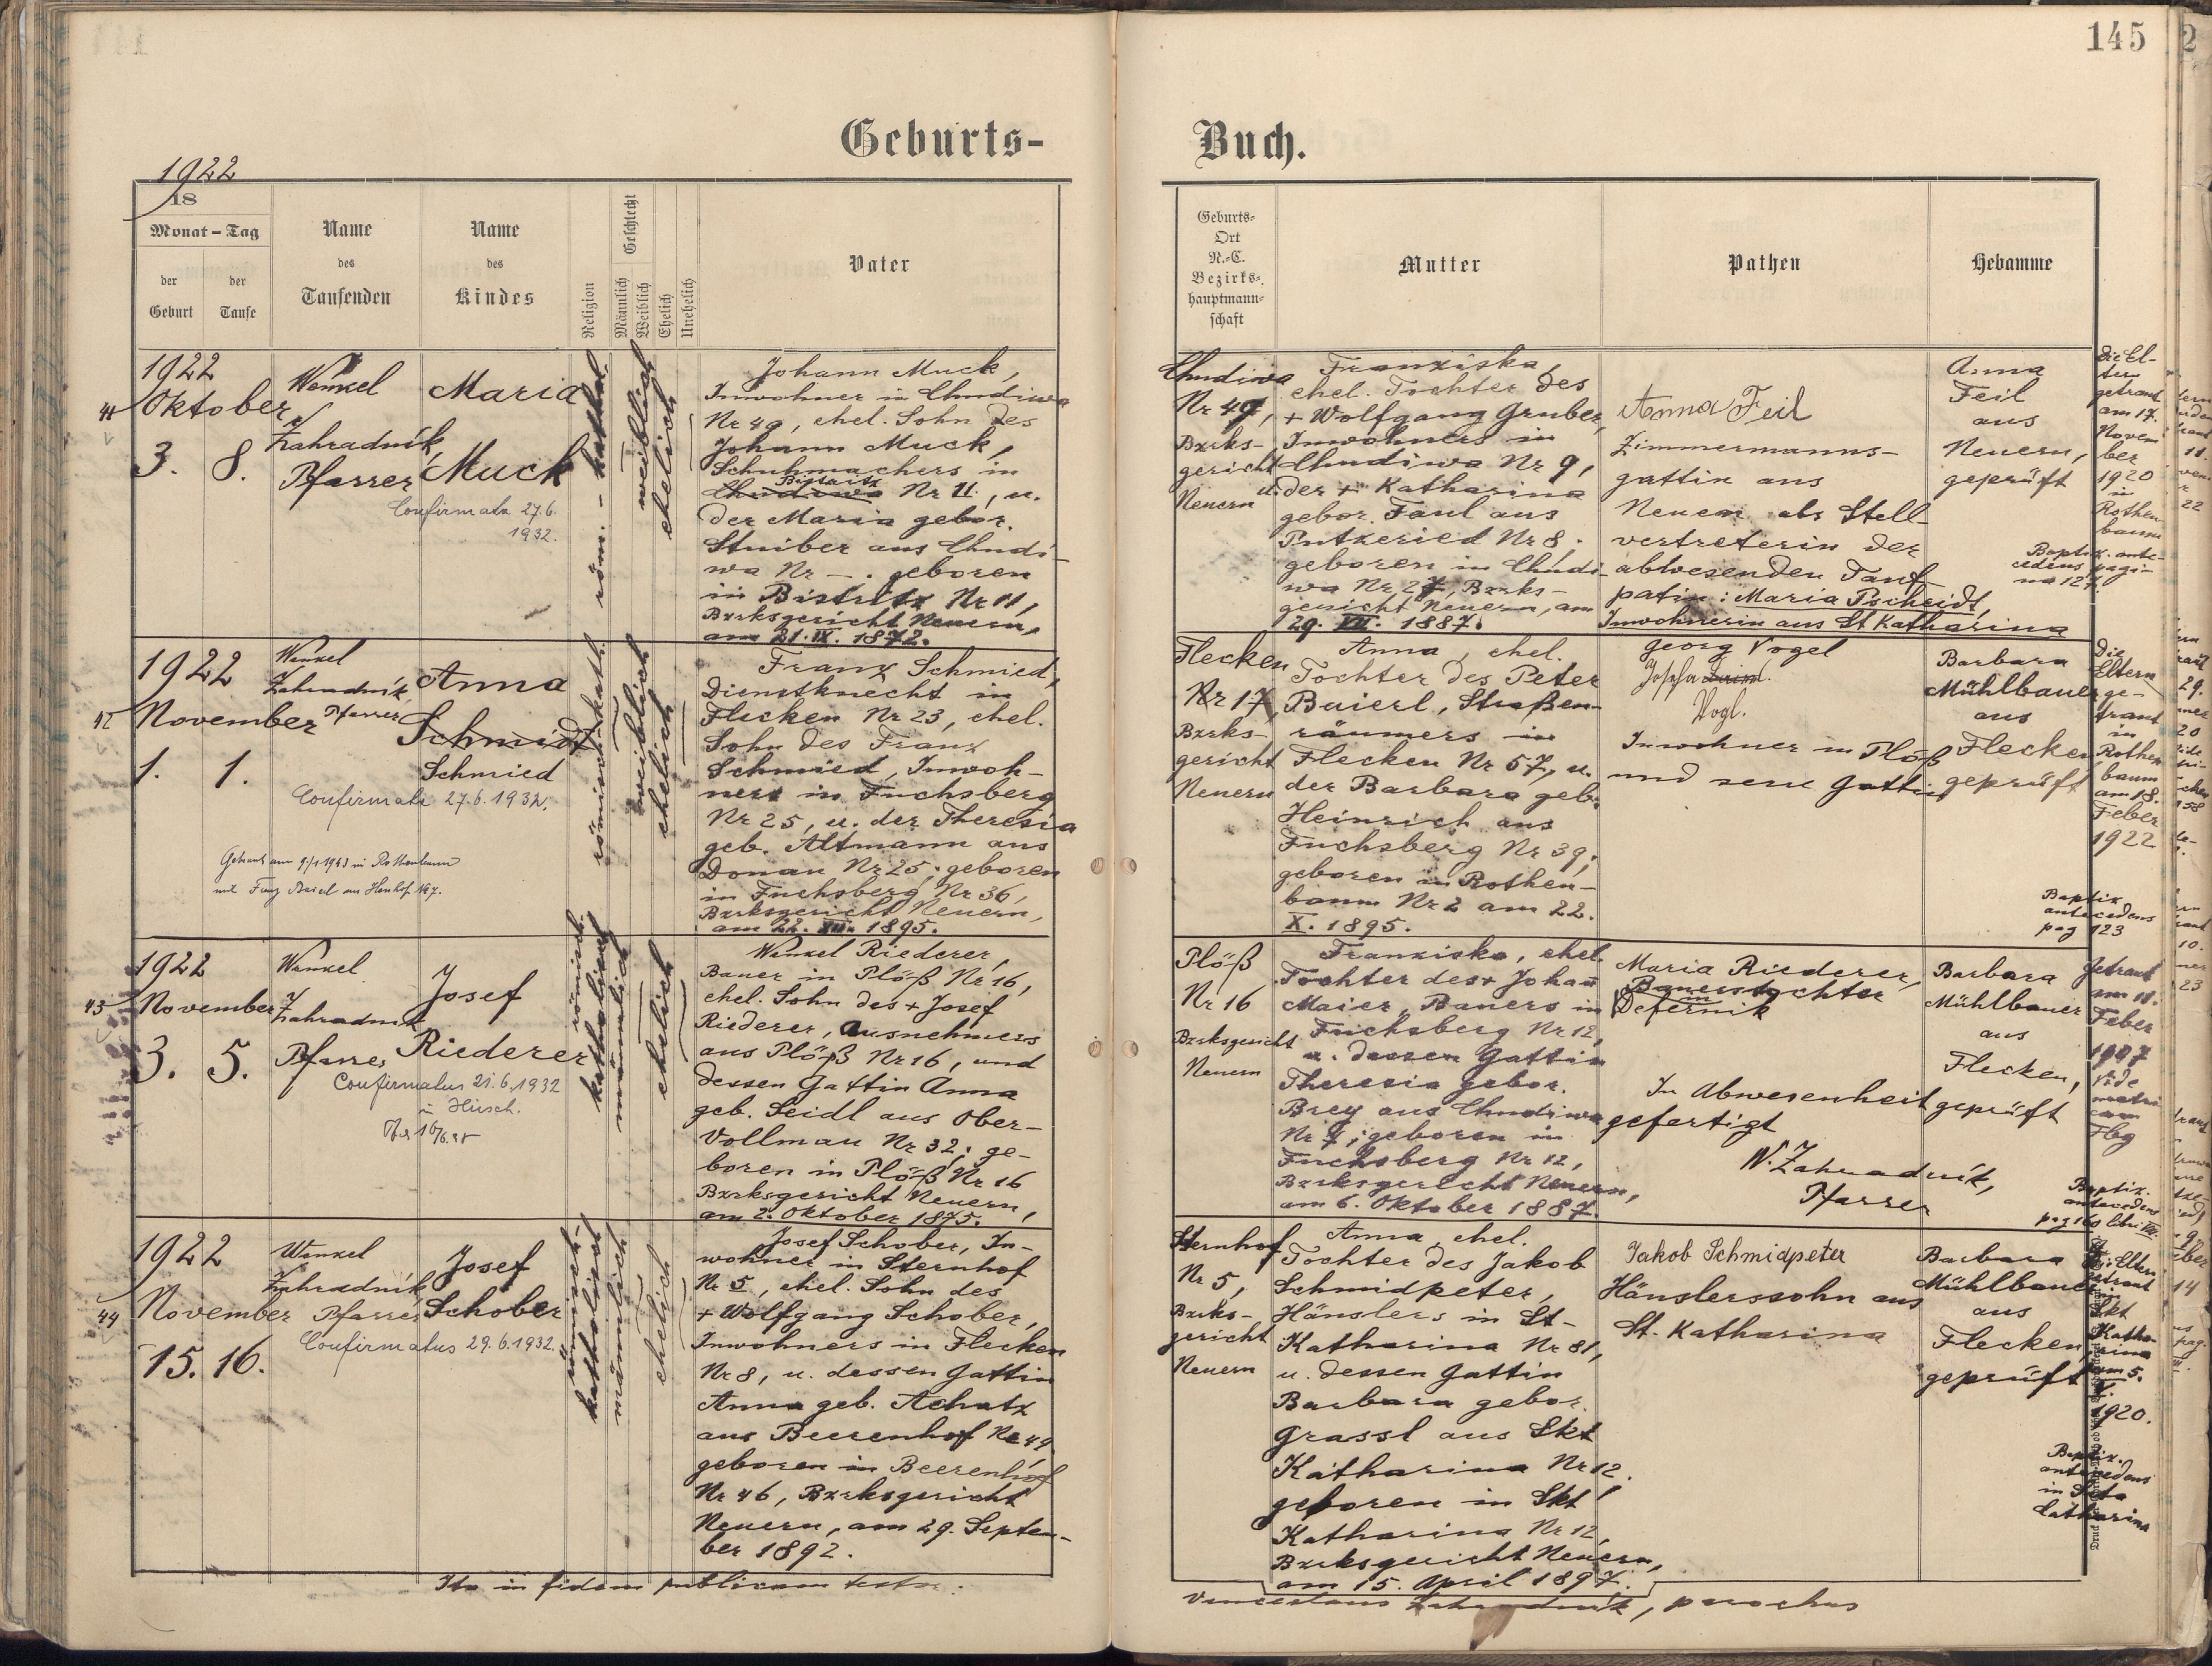 145
Geburts-
Buch.
1922
18
Monat - Tag
der
Geburt
der
Taufe
Name
des
Taufenden
Name
des
Kindes
Religion
Geschlecht
Männlich
Weiblich
Ehelich
Unehelich
Vater
Geburts-
Ort
N.-C.
Bezirks-
hauptmann-
schaft
Mutter
Pathen
Hebamme
41
1922
Oktober
3. 8.
Wenzel
Zahradník,
Pfarrer
Maria
Muck
Confirmata 27.6.
1932.
röm. - kathol.
weiblich
ehelich
Johann Muck,
Inwohner in Chudiwa
Nr 49, ehel. Sohn des
Johann Muck,
Schuhmachers in
Bistritz
Chudiwa Nr 11, u.
der Maria gebor.
Stuiber aus Chudi-
wa Nr —. geboren
in Bistritz Nr 11,
Bzrksgericht Neuern,
am 21. IX. 1872.
Chudiwa
Nr 49,
Bzrks-
gericht
Neuern
Franziska,
ehel. Tochter des
+ Wolfgang Gruber,
Inwohners in
Chudiwa Nr 9,
u. der + Katharina
gebor. Faul aus
Putzeried Nr 8;
geboren in Chudi-
wa Nr 27, Bzrks-
gericht Neuern, am
29. VII. 1887.
Anna Feil
Zimmermanns-
gattin aus
Neuern als Stell-
vertreterin der
abwesenden Tauf-
patin: Maria Pscheidt,
Inwohnerin aus St Katharina
Anna
Feil
aus
Neuern,
geprüft
Die El-
tern
getraut
am 17.
Novem
ber
1920
in
Rothen
baum
Baptiz. ante-
cedens pagi-
na 127.
42
1922
November
1. 1.
Wenzel
Zahradník,
Pfarrer
Anna
Schmidt
Schmied
Confirmata 27.6.1932.
Getraut am 9/1 1943 in Rothenbaum
mit Franz
römisch-kath.
weiblich
ehelich
Franz Schmied,
Dienstknecht in
Flecken Nr 23, ehel.
Sohn des Franz
Schmied, Inwoh-
ners in Fuchsberg
Nr 25, u. der Theresia
geb. Altmann aus
Donau Nr 25; geboren
in Fuchsberg Nr 36,
Bzrksgericht Neuern,
am 22. XII. 1895.
Flecken
Nr 17,
Bzrks-
gericht
Neuern
Anna, ehel.
Tochter des Peter
Baierl, Straßen-
räumers in
Flecken Nr 57, u.
der Barbara geb.
Heinrich aus
Fuchsberg Nr 39;
geboren in Rothen-
baum Nr 2 am 22.
X. 1895.
Georg Vogel
Josefa
Vogl.
Inwohner in Plöß
und seine Gattin
Barbara
Mühlbauer
aus
Flecken
geprüft
Die
Eltern
ge-
traut
in
Rothen
baum
am 18.
Feber
1922
Baptiz
antecedens
pag 123
43
1922
November
3. 5.
Wenzel
Zahradník
Pfarrer
Josef
Riederer
Confirmatus 21.6.1932
in Hirsch.
römisch
katholisch
männlich
ehelich
Wenzel Riederer,
Bauer in Plöß Nr 16,
ehel. Sohn des + Josef
Riederer, Ausnehmers
aus Plöß Nr 16, und
dessen Gattin Anna
geb. Seidl aus Ober-
Vollmau Nr 32; ge-
boren in Plöß Nr 16
Bzrksgericht Neuern,
am 2. Oktober 1875.
Plöß
Nr 16
Bzrksgericht
Neuern
Franziska, ehel.
Tochter des + Johann
Maier, Bauers in
Fuchsberg Nr 12,
u. dessen Gattin
Theresia gebor.
Brey aus Chudiwa
Nr 7; geboren in
Fuchsberg Nr 12,
Bzrksgericht Neuern,
am 6. Oktober 1887.
Maria Riederer,
Bauerstochter
in
Defernik
In Abwesenheit
gefertigt
W. Zahradník,
Pfarrer
Barbara
Mühlbauer
aus
Flecken,
geprüft
Getraut
am 11.
Feber
1907
Vide
matri
cam
Fbg
Baptiz.
antecedens
pag 160 libri VIII.
44
1922
November
15. 16.
Wenzel
Zahradník
Pfarrer
Josef
Schober
Confirmatus 29.6.1932.
römisch-
katholisch
männlich
ehelich
Josef Schober, In-
wohner in Sternhof
Nr 5, ehel. Sohn des
+ Wolfgang Schober,
Inwohners in Flecken
Nr 8, u. dessen Gattin
Anna geb. Achatz
aus Beerenhof Nr 49,
geboren in Beerenhof
Nr 46, Bzrksgericht
Neuern, am 29. Septem-
ber 1892.
Sternhof
Nr 5,
Bzrks-
gericht
Neuern
Anna, ehel.
Tochter des Jakob
Schmidpeter,
Häuslers in St-
Katharina Nr 81,
u. dessen Gattin
Barbara gebor.
Grassl aus Skt
Katharina Nr 12;
geboren in Skt
Katharina Nr 12,
Bzrksgericht Neuern,
am 15. April 1897.
Jakob Schmidpeter
Häuslerssohn aus
St. Katharina
Barbara
Mühlbauer
aus
Flecken,
geprüft
Die Eltern
getraut
in
Skt
Katha-
rina
am 5.
V.
1920.
Baptiz.
antecedens
in Scta
Catharina
Ita in fidem publicam testor.
Venceslaus Zahradník, parochus